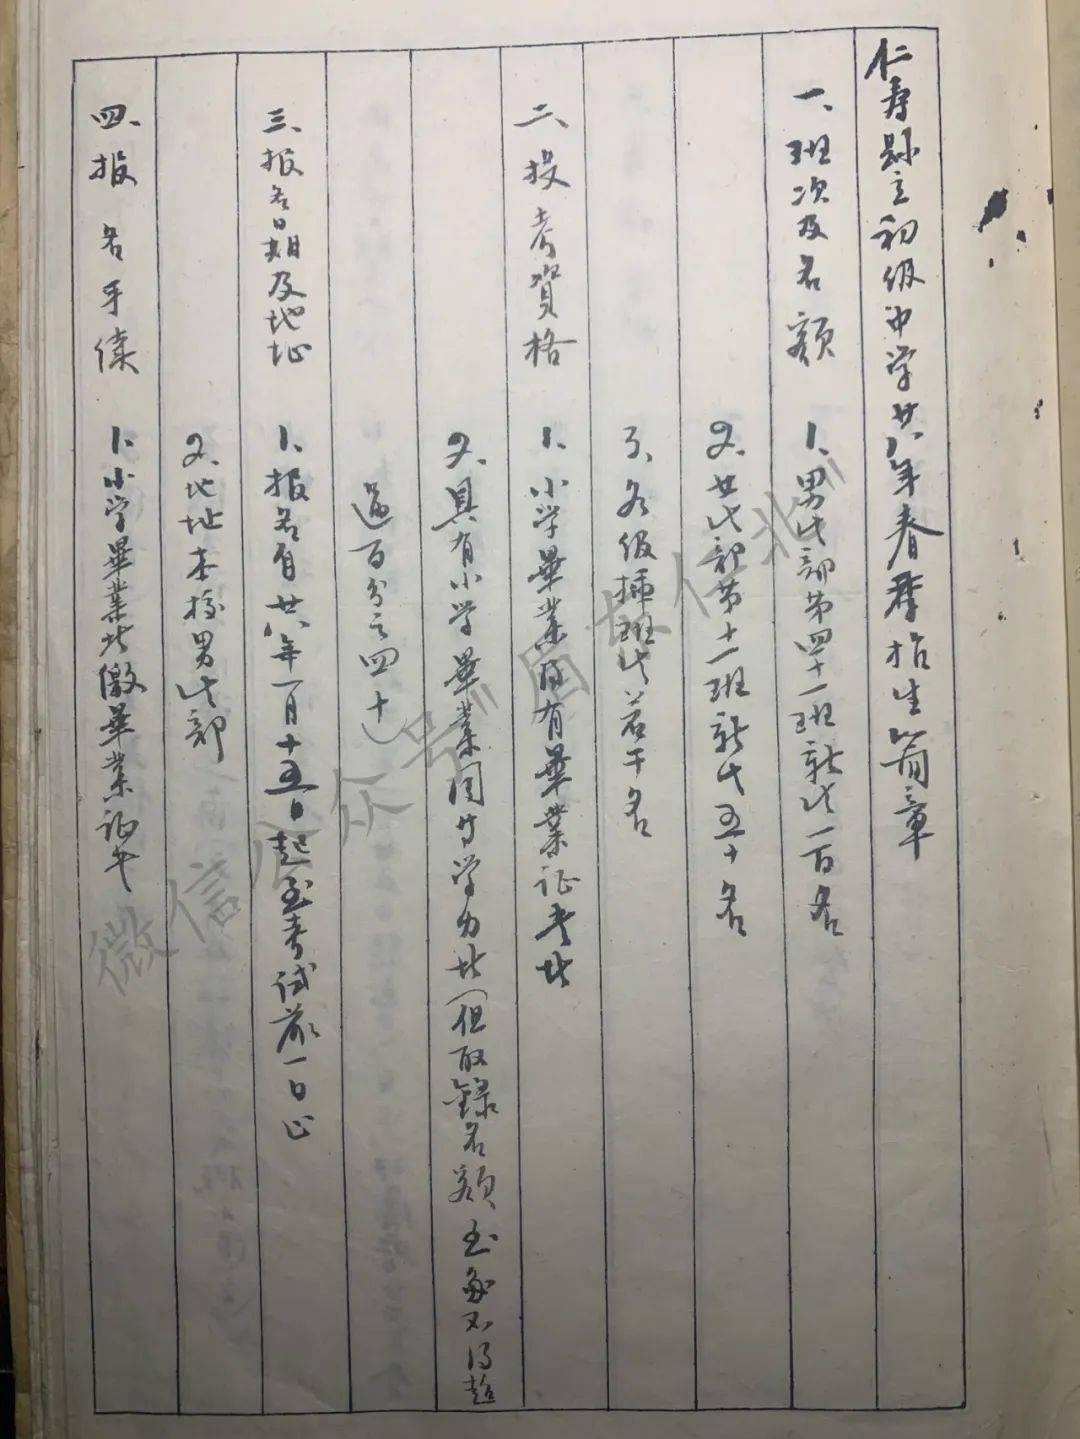 仁寿縣立初级中学廿八年春季招生简章
一、班次及名额 1、男生部第四十一班新生一百名
2、女生部第十一班新生五十名
3、各级插班生若干名
二、投考資格 1、小学畢業得有畢業证书者
2、具有小学畢業同等学力者(但取録名额至多不得超
过百分之四十)
三、报名日期及地址 1、报名自廿八年一月十五日起至考试前一日止
2、地址本校男生部
四、报名手续 1、小学畢業者缴畢業证书
微信公众号